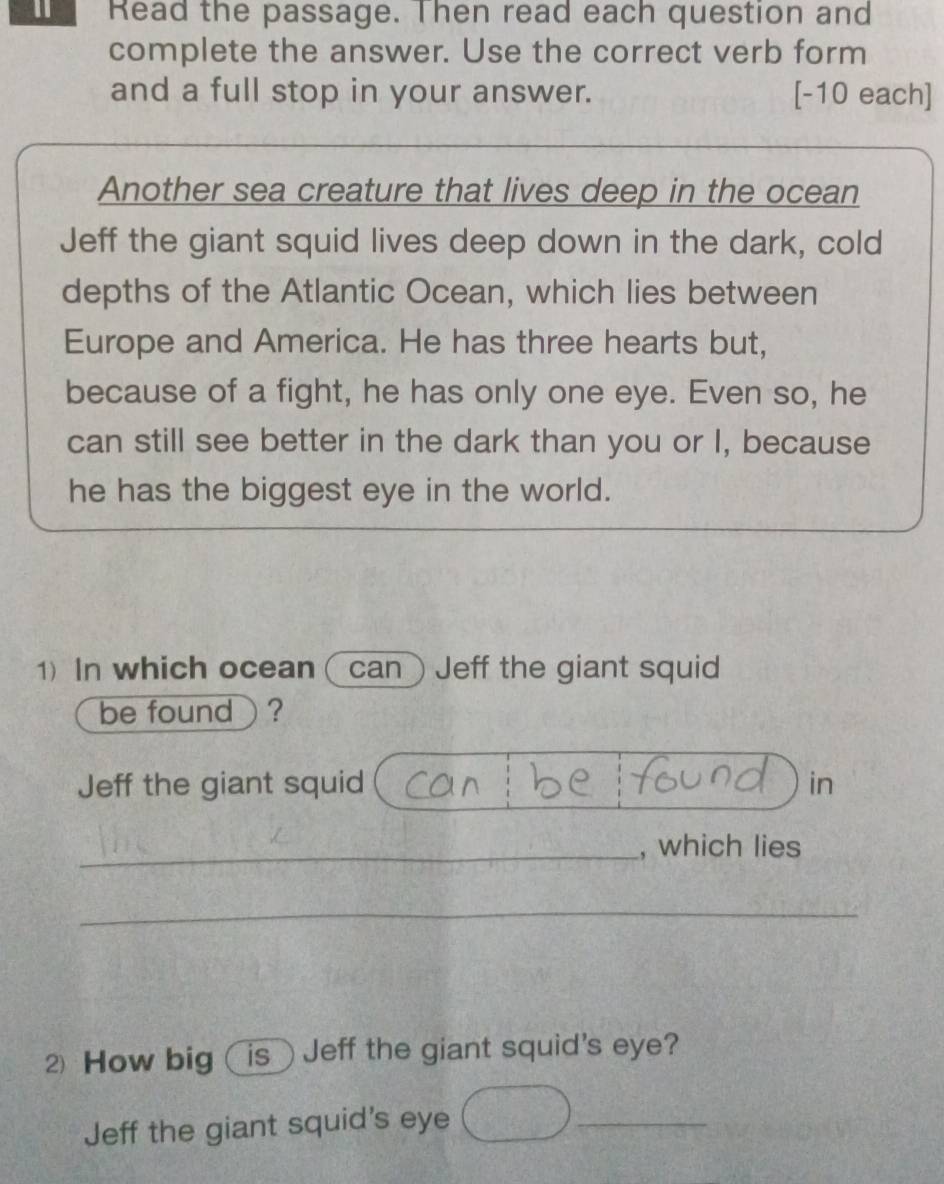 Read the passage. Then read each question and
complete the answer. Use the correct verb form
and a full stop in your answer. [-10 each]
Another sea creature that lives deep in the ocean
Jeff the giant squid lives deep down in the dark, cold
depths of the Atlantic Ocean, which lies between
Europe and America. He has three hearts but,
because of a fight, he has only one eye. Even so, he
can still see better in the dark than you or I, because
he has the biggest eye in the world.
1) In which ocean can Jeff the giant squid
be found ?
Jeff the giant squid can be found in
, which lies
2) How big is Jeff the giant squid's eye?
Jeff the giant squid's eye